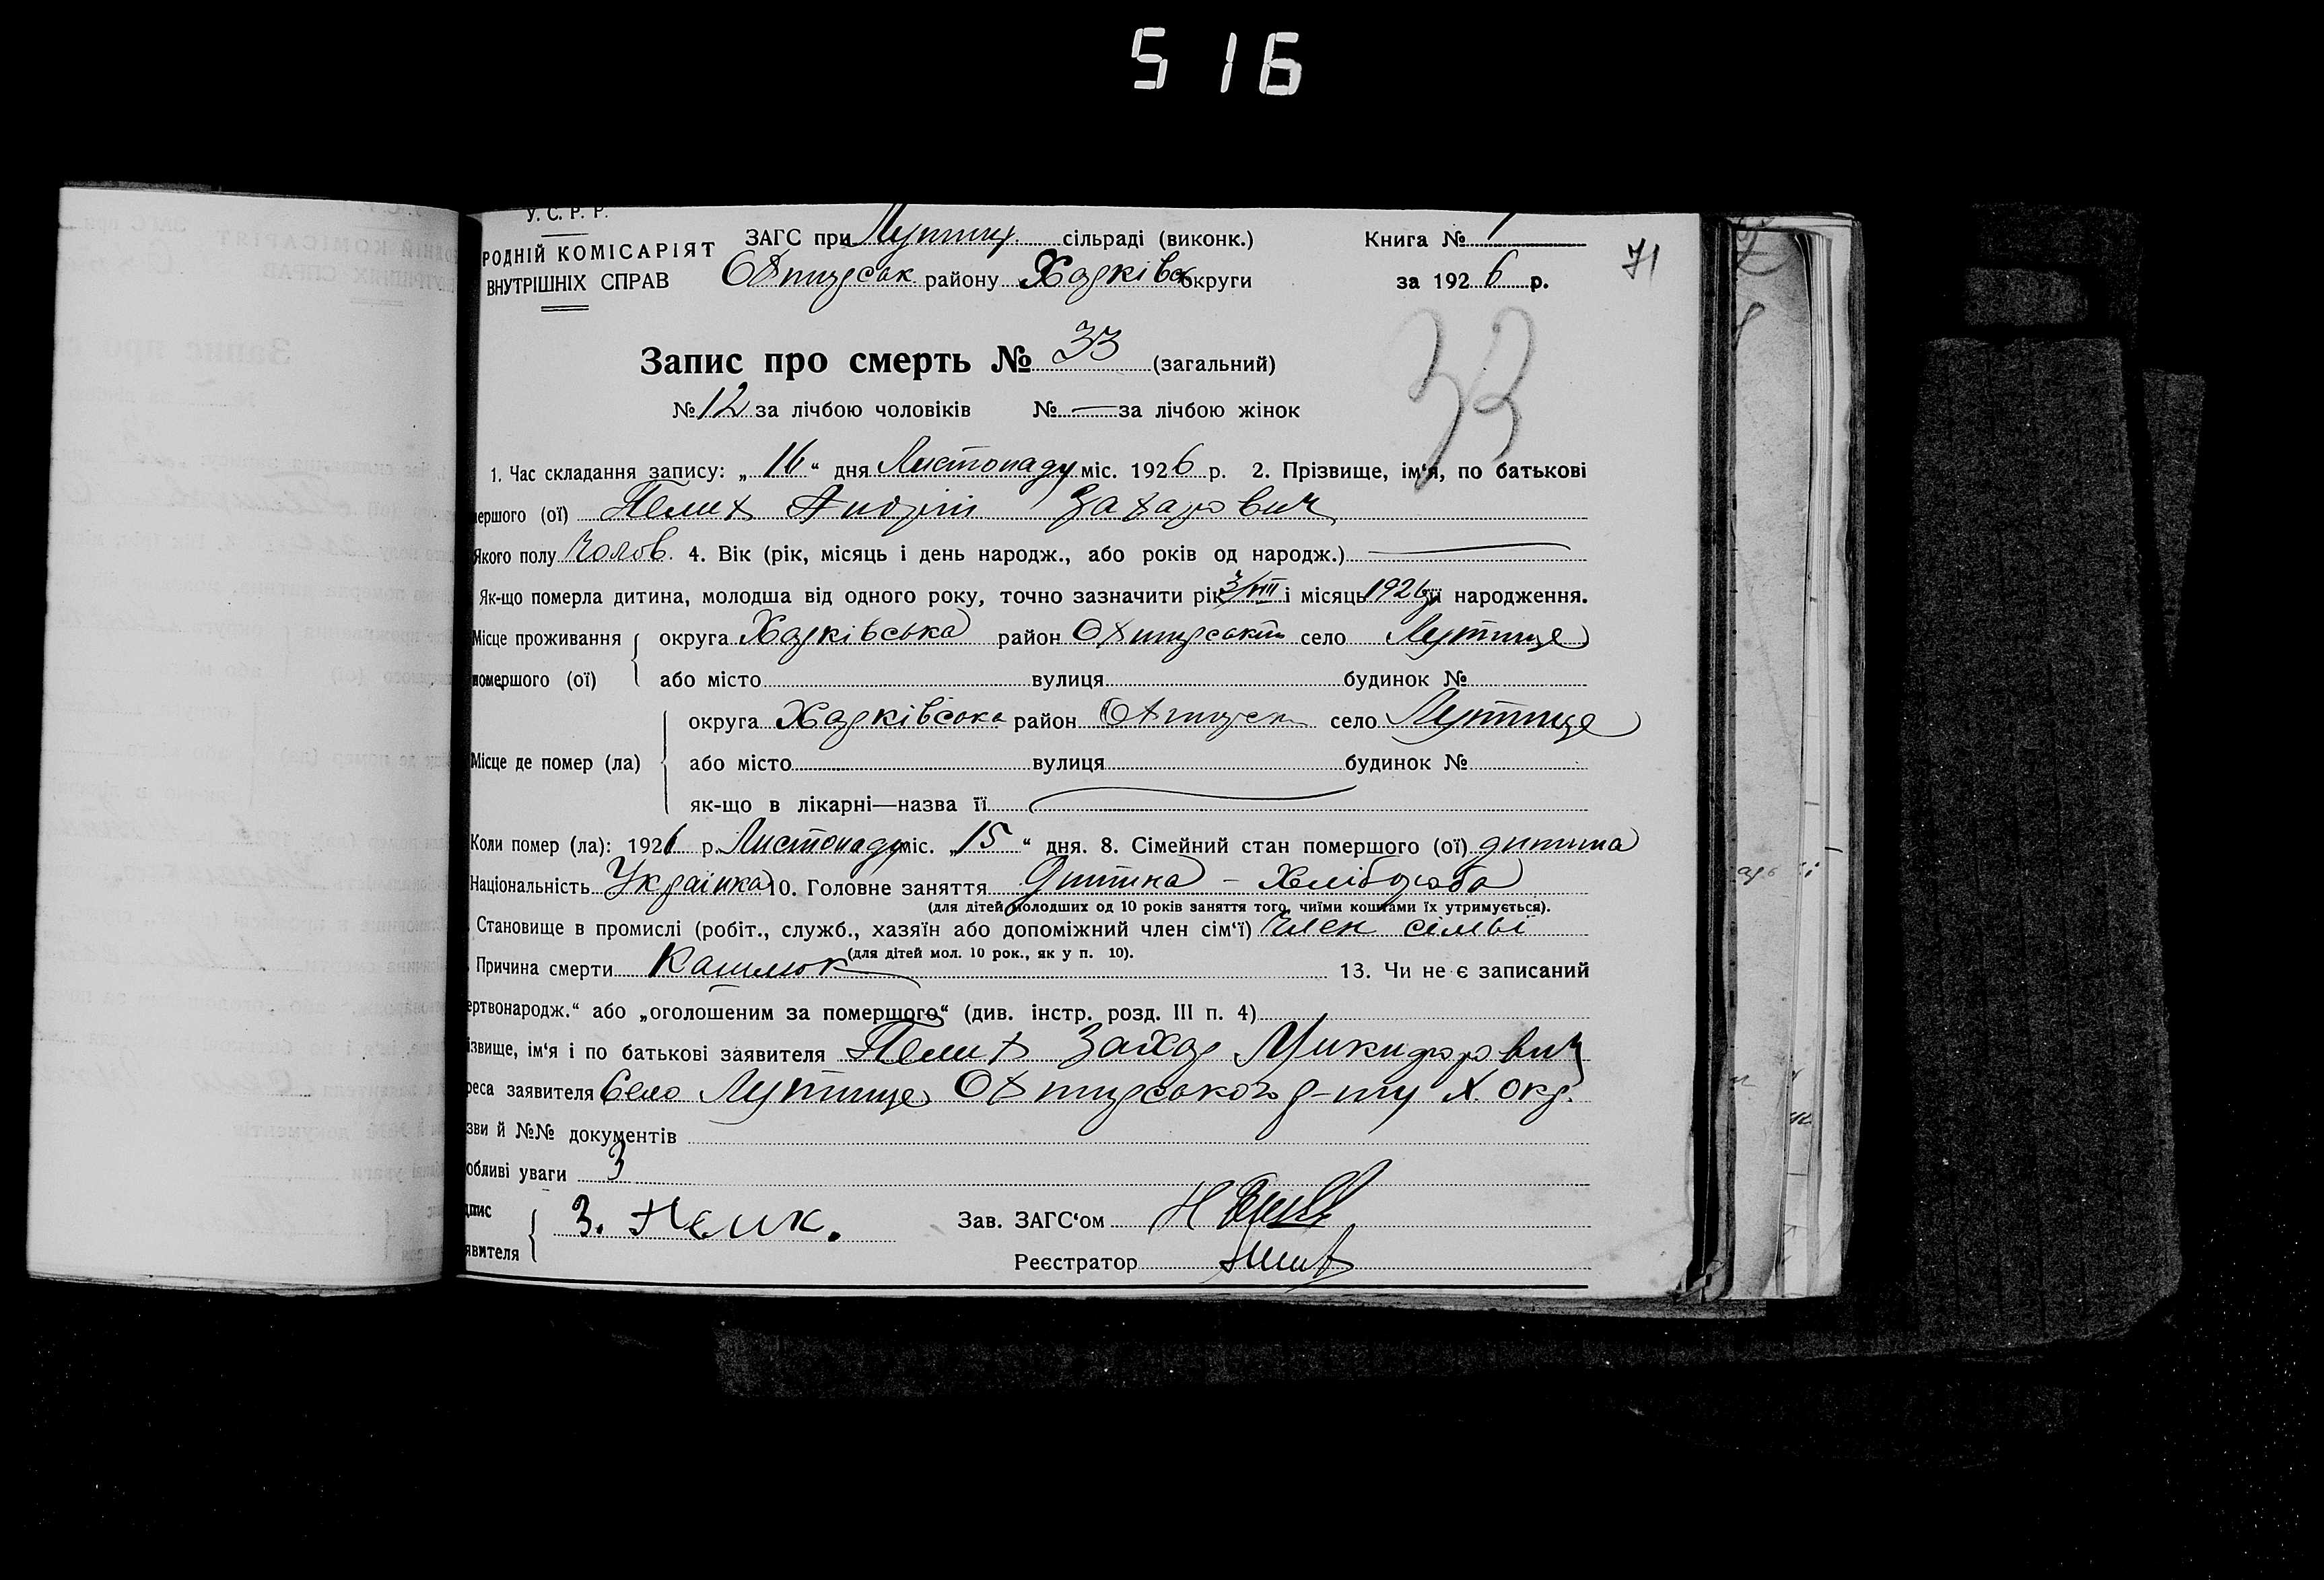 516
У. С. Р. Р.
РОДНІЙ КОМІСАРІЯТ
ВНУТРІШНІХ СПРАВ
ЗАГС при Лутищ. сільраді (виконк.)
Охтирськ. району Харківс округи
Книга № 1
за 1926 р.
71
Запис про смерть № 33 (загальний)
33
№ 12 за лічбою чоловіків № — за лічбою жінок
1. Час складання запису: „16“ дня Листопаду міс. 1926 р. 2. Прізвище, ім‘я, по батькові
мершого (ої) Пелих Андрій Захарович
Якого полу Чолов. 4. Вік (рік, місяць і день народж., або років од народж.) —
Як-що померла дитина, молодша від одного року, точно зазначити рік 3/VIII і місяць 1926 її народження.
Місце проживання помершого (ої) округа Харківська район Охтирський село Лутище
або місто вулиця будинок №
Місце де помер (ла) округа Харківська район Охтирськ село Лутище
або місто вулиця будинок №
як-що в лікарні—назва її —
Коли помер (ла): 1926 р. Листопаду міс. „15“ дня. 8. Сімейний стан помершого (ої) дитина
Національність Українка 10. Головне заняття Дитина - Хлібороба
(для дітей молодших од 10 років заняття того, чиїми коштами їх утримується).
Становище в промислі (робіт., служб., хазяїн або допоміжний член сім‘ї) Член сімьї
(для дітей мол. 10 рок., як у п. 10).
Причина смерти Кашлюк 13. Чи не є записаний
ертвонародж.“ або „оголошеним за помершого“ (див. інстр. розд. III п. 4)
ізвище, ім‘я і по батькові заявителя Пелих Захар Микифорович
реса заявителя Село Лутище Охтирського р-ну Х. окр.
зви й №№ документів
обливі уваги 3
дпис
явителя З. Пелих.
Зав. ЗАГС‘ом
Реєстратор